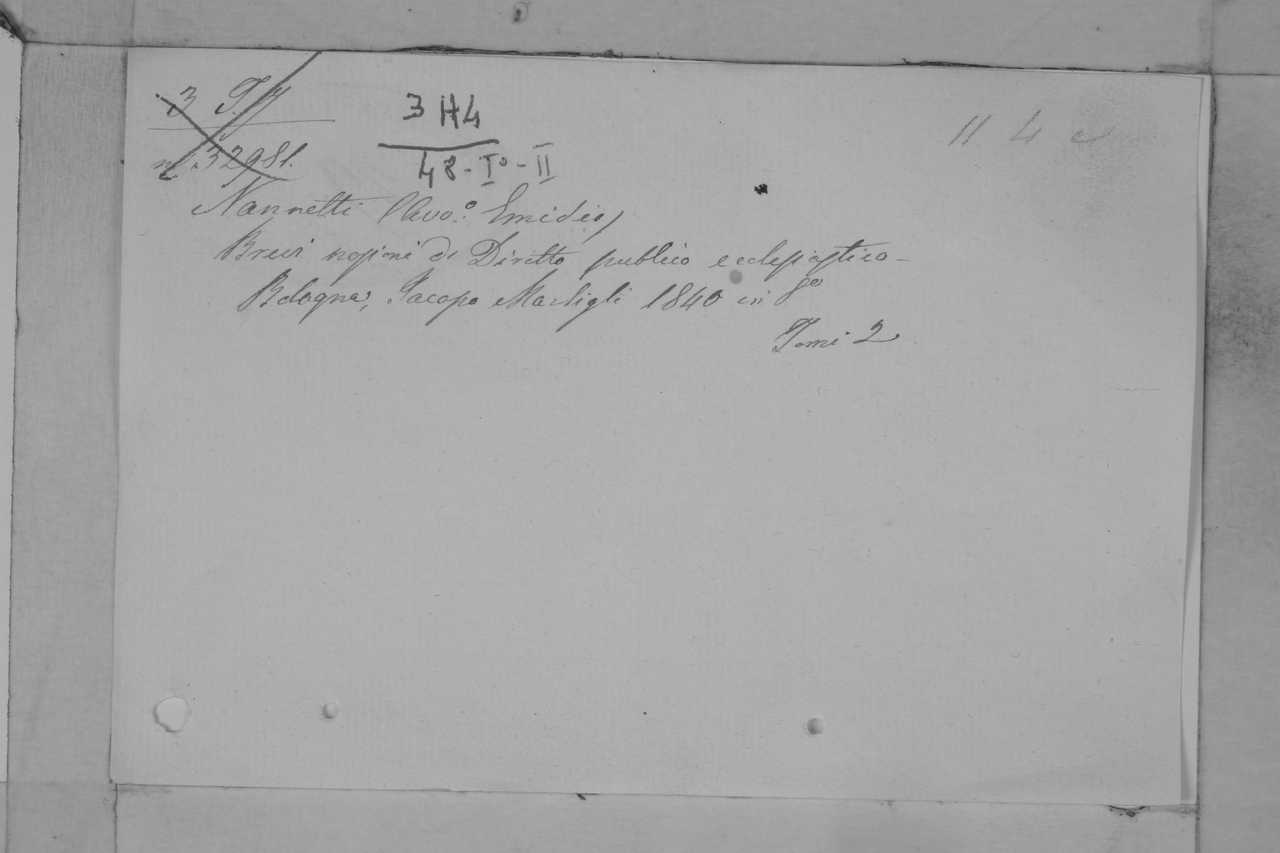 3 H4
48 - I° - II
n.° 32981.
Nannetti (Avo.° Emidio)
Brevi nozioni di Diritto publico ecclesiastico -
Bologna, Jacopo Marsigli 1840 in 8°
Tomi 2